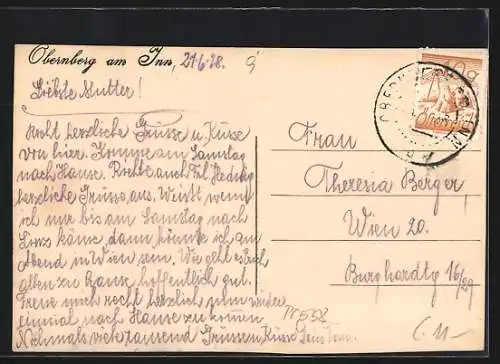 Obernberg am Inn, 21.6.28.
Liebste Mutter!
Recht herzliche Grüsse u. Küsse
von hier. Komme am Samstag
nach Hause. Richte auch Frl. Hedwig
herzliche Grüsse aus. Würst, wenn
ich nur bis am Samstag nach
Linz käme, dann könnte ich am
Abend in Wien sein. Wie geht es Euch
allen zu Hause, hoffentlich gut.
Freue mich recht herzlich schon wieder
einmal nach Hause zu kommen.
Nochmals viele tausend Grüsse u. Küsse Dein
Frau
Theresia Berger,
Wien 20.
Burghardtg 16/29
C 11-